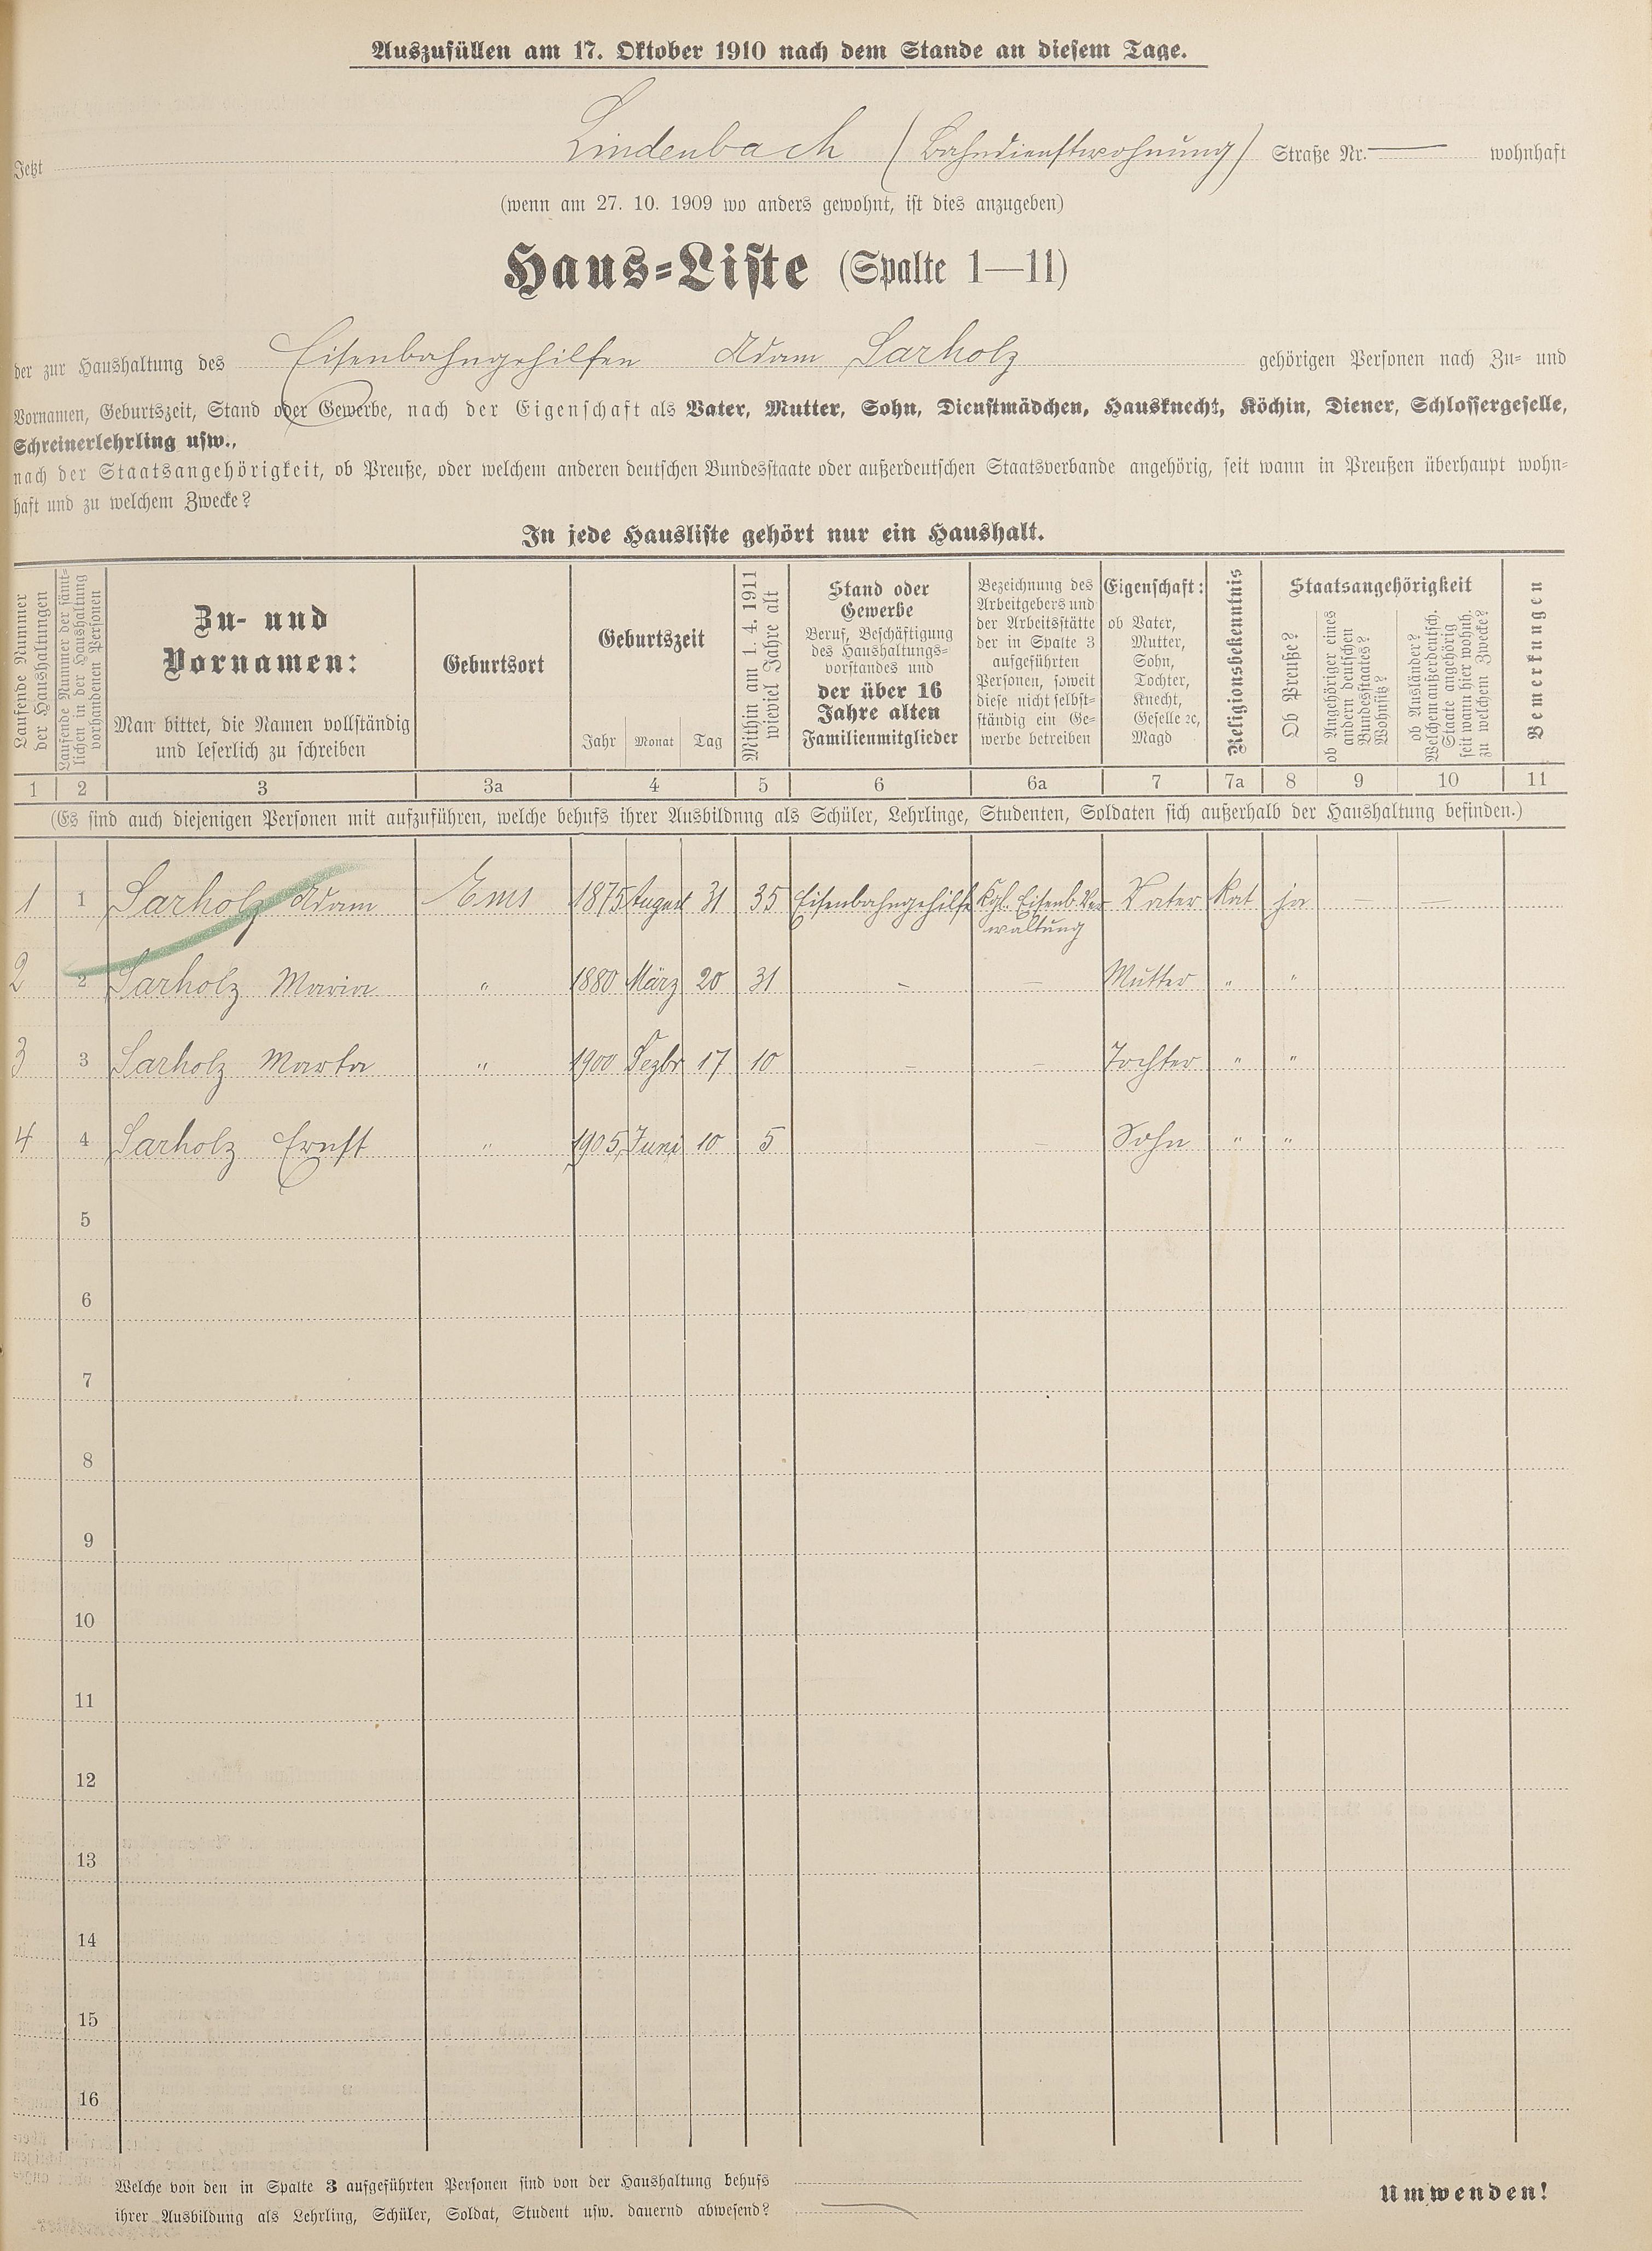 Auszufüllen am 17. Oktober 1910 nach dem Stande an diesem Tage.
Jetzt Lindenbach (Bahndienstwohnung) Straße Nr. — wohnhaft
(wenn am 27. 10. 1909 wo anders gewohnt, ist dies anzugeben)
Haus-Liste (Spalte 1—11)
der zur Haushaltung des Eisenbahngehilfen Adam Sarholz gehörigen Personen nach Zu- und
Vornamen, Geburtszeit, Stand oder Gewerbe, nach der Eigenschaft als Vater, Mutter, Sohn, Dienstmädchen, Hausknecht, Köchin, Diener, Schlossergeselle,
Schreinerlehrling usw.,
nach der Staatsangehörigkeit, ob Preuße, oder welchem anderen deutschen Bundesstaate oder außerdeutschen Staatsverbande angehörig, seit wann in Preußen überhaupt wohn-
haft und zu welchem Zwecke?
In jede Hausliste gehört nur ein Haushalt.
Laufende Nummer
der Haushaltungen
Laufende Nummer der sämt-
lichen in der Haushaltung
vorhandenen Personen
Zu- und
Vornamen:
Man bittet, die Namen vollständig
und leserlich zu schreiben
Geburtsort
Geburtszeit
Jahr Monat Tag
Mithin am 1. 4. 1911
wieviel Jahre alt
Stand oder
Gewerbe
Beruf, Beschäftigung
des Haushaltungs-
vorstandes und
der über 16
Jahre alten
Familienmitglieder
Bezeichnung des
Arbeitgebers und
der Arbeitsstätte
der in Spalte 3
aufgeführten
Personen, soweit
diese nicht selbst-
ständig ein Ge-
werbe betreiben
Eigenschaft:
ob Vater,
Mutter,
Sohn,
Tochter,
Knecht,
Geselle ꝛc,
Magd
Religionsbekenntnis
Staatsangehörigkeit
Ob Preuße?
ob Angehöriger eines
andern deutschen
Bundesstaates?
Wohnsitz?
ob Ausländer?
Welchem außerdeutsch.
Staate angehörig
seit wann hier wohnh.
zu welchem Zwecke?
Bemerkungen
1 2 3 3a 4 5 6 6a 7 7a 8 9 10 11
(Es sind auch diejenigen Personen mit aufzuführen, welche behufs ihrer Ausbildnng als Schüler, Lehrlinge, Studenten, Soldaten sich außerhalb der Haushaltung befinden.)
1 1 Sarholz Adam Ems 1875 August 31 35 Eisenbahngehilfe Kgl. Eisenb. Ver Vater Kat ja — —
waltung
2 2 Sarholz Maria " 1880 März 20 31 - — Mutter " "
3 3 Sarholz Marta " 1900 Dezbr 17 10 - — Tochter " "
4 4 Sarholz Ernst " 1905 Juni 10 5 — Sohn " "
5
6
7
8
9
10
11
12
13
14
15
16
Welche von den in Spalte 3 aufgeführten Personen sind von der Haushaltung behufs
ihrer Ausbildung als Lehrling, Schüler, Soldat, Student usw. dauernd abwesend? —
Umwenden!